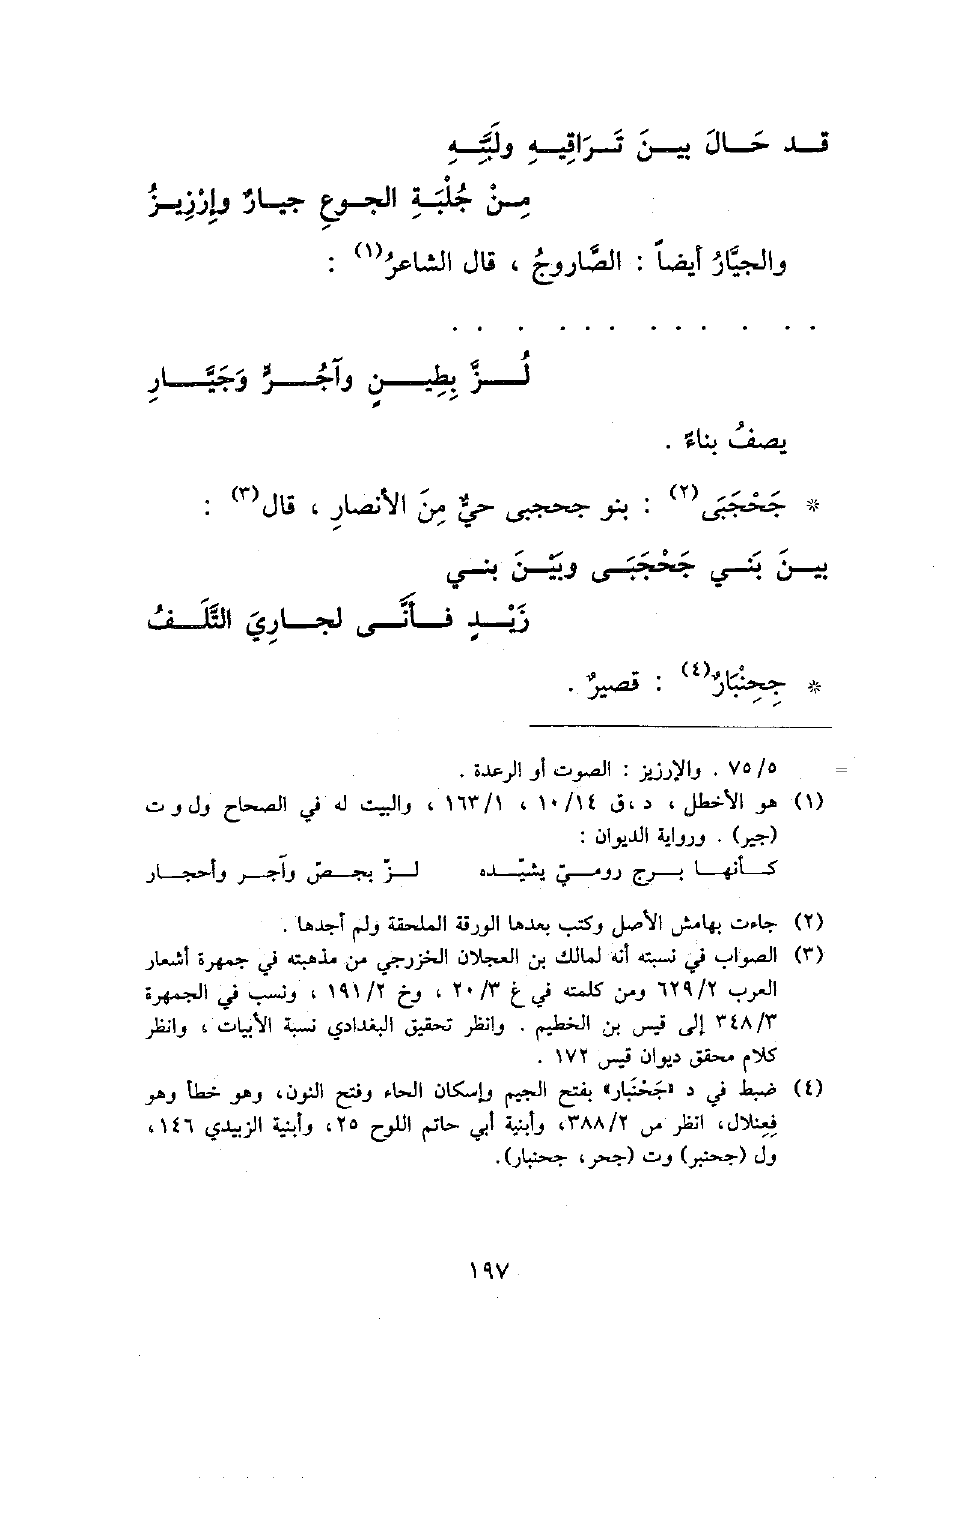 قـــد حَـــالَ بيـــنَ تَـــرَاقِيـــهِ ولَبَّتِـــهِ
مِـــنْ جُلْبَـــةِ الجـــوعِ جيـــارٌ وإِرْزِيـــزُ
والجيَّارُ أيضاً : الصَّاروجُ ، قال الشاعرُ(١) :
. . . . . . . . . . . .
لُـــزَّ بِطِيـــنٍ وآجُـــرٍّ وَجَيَّـــارِ
يصفُ بناءً .
* جَحْجَبَى(٢) : بنو جحجبى حيٌّ مِنَ الأنصارِ ، قال(٣) :
بيـــنَ بَنـــي جَحْجَبَـــى وبَيْـــنَ بنـــي
زَيْـــدٍ فـــأَنَّـــى لجـــارِيَ التَّلَـــفُ
* جِحِنْبَارٌ(٤) : قصيرٌ .
= ٧٥/٥ . والإرزيز : الصوت أو الرعدة .
(١) هو الأخطل ، د ،ق ١٠/١٤ ، ١٦٣/١ ، والبيت له في الصحاح ول و ت
(جير) . ورواية الديوان :
كـــأنهـــا بـــرج رومـــيّ يشيّـــده لـــزّ بجـــصّ وآجـــر وأحجـــار
(٢) جاءت بهامش الأصل وكتب بعدها الورقة الملحقة ولم أجدها .
(٣) الصواب في نسبته أنه لمالك بن العجلان الخزرجي من مذهبته في جمهرة أشعار
العرب ٦٢٩/٢ ومن كلمته في غ ٢٠/٣ ، وخ ١٩١/٢ ، ونسب في الجمهرة
٣٤٨/٣ إلى قيس بن الخطيم . وانظر تحقيق البغدادي نسبة الأبيات ، وانظر
كلام محقق ديوان قيس ١٧٢ .
(٤) ضبط في د «جَحْنَبار» بفتح الجيم وإسكان الحاء وفتح النون، وهو خطأ وهو
فِعِنلال، انظر س ٣٨٨/٢، وأبنية أبي حاتم اللوح ٢٥، وأبنية الزبيدي ١٤٦،
ول (جحنبر) وت (جحر، جحنبار).
١٩٧